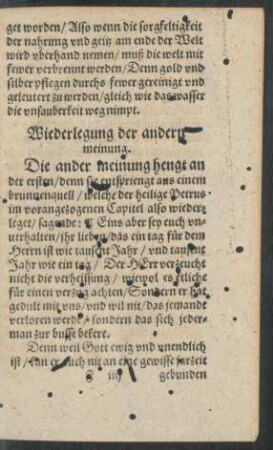 get worden/ Also wenn die sorgfeltigkeit
der nahrung vnd geitz am ende der Welt
wird vberhand nemen/ muß die welt mit
fewer verbrennt werden/ Denn gold vnd
silber pflegen durchs fewer gereinigt vnd
geleutert zu werden/ gleich wie das wasser
die vnsauberkeit wegnimpt.
Wiederlegung der andern
meinung.
Die ander meinung hengt an
der ersten/ denn sie entspriengt aus einem
brunnenquell/ welche der heilige Petrus
im vorangezogenen Capitel also wieder-
leget/ sagende: Eins aber sey euch vn-
uerhalten/ ihr lieben/ das ein tag für dem
Herrn ist wie tausent Jahr/ vnd tausent
Jahr wie ein tag/ Der HErr verzeucht
nicht die verheissung/ wiewol es etliche
für einen verzug achten/ Sondern er hat
gedult mit vns/ vnd wil nit/ das jemandt
verloren werde/ sondern das sich jeder-
man zur busse bekere.
Denn weil Gott ewig vnd vnendlich
ist/ kan er auch nit an eine gewisse jarzeit
iiij gebunden